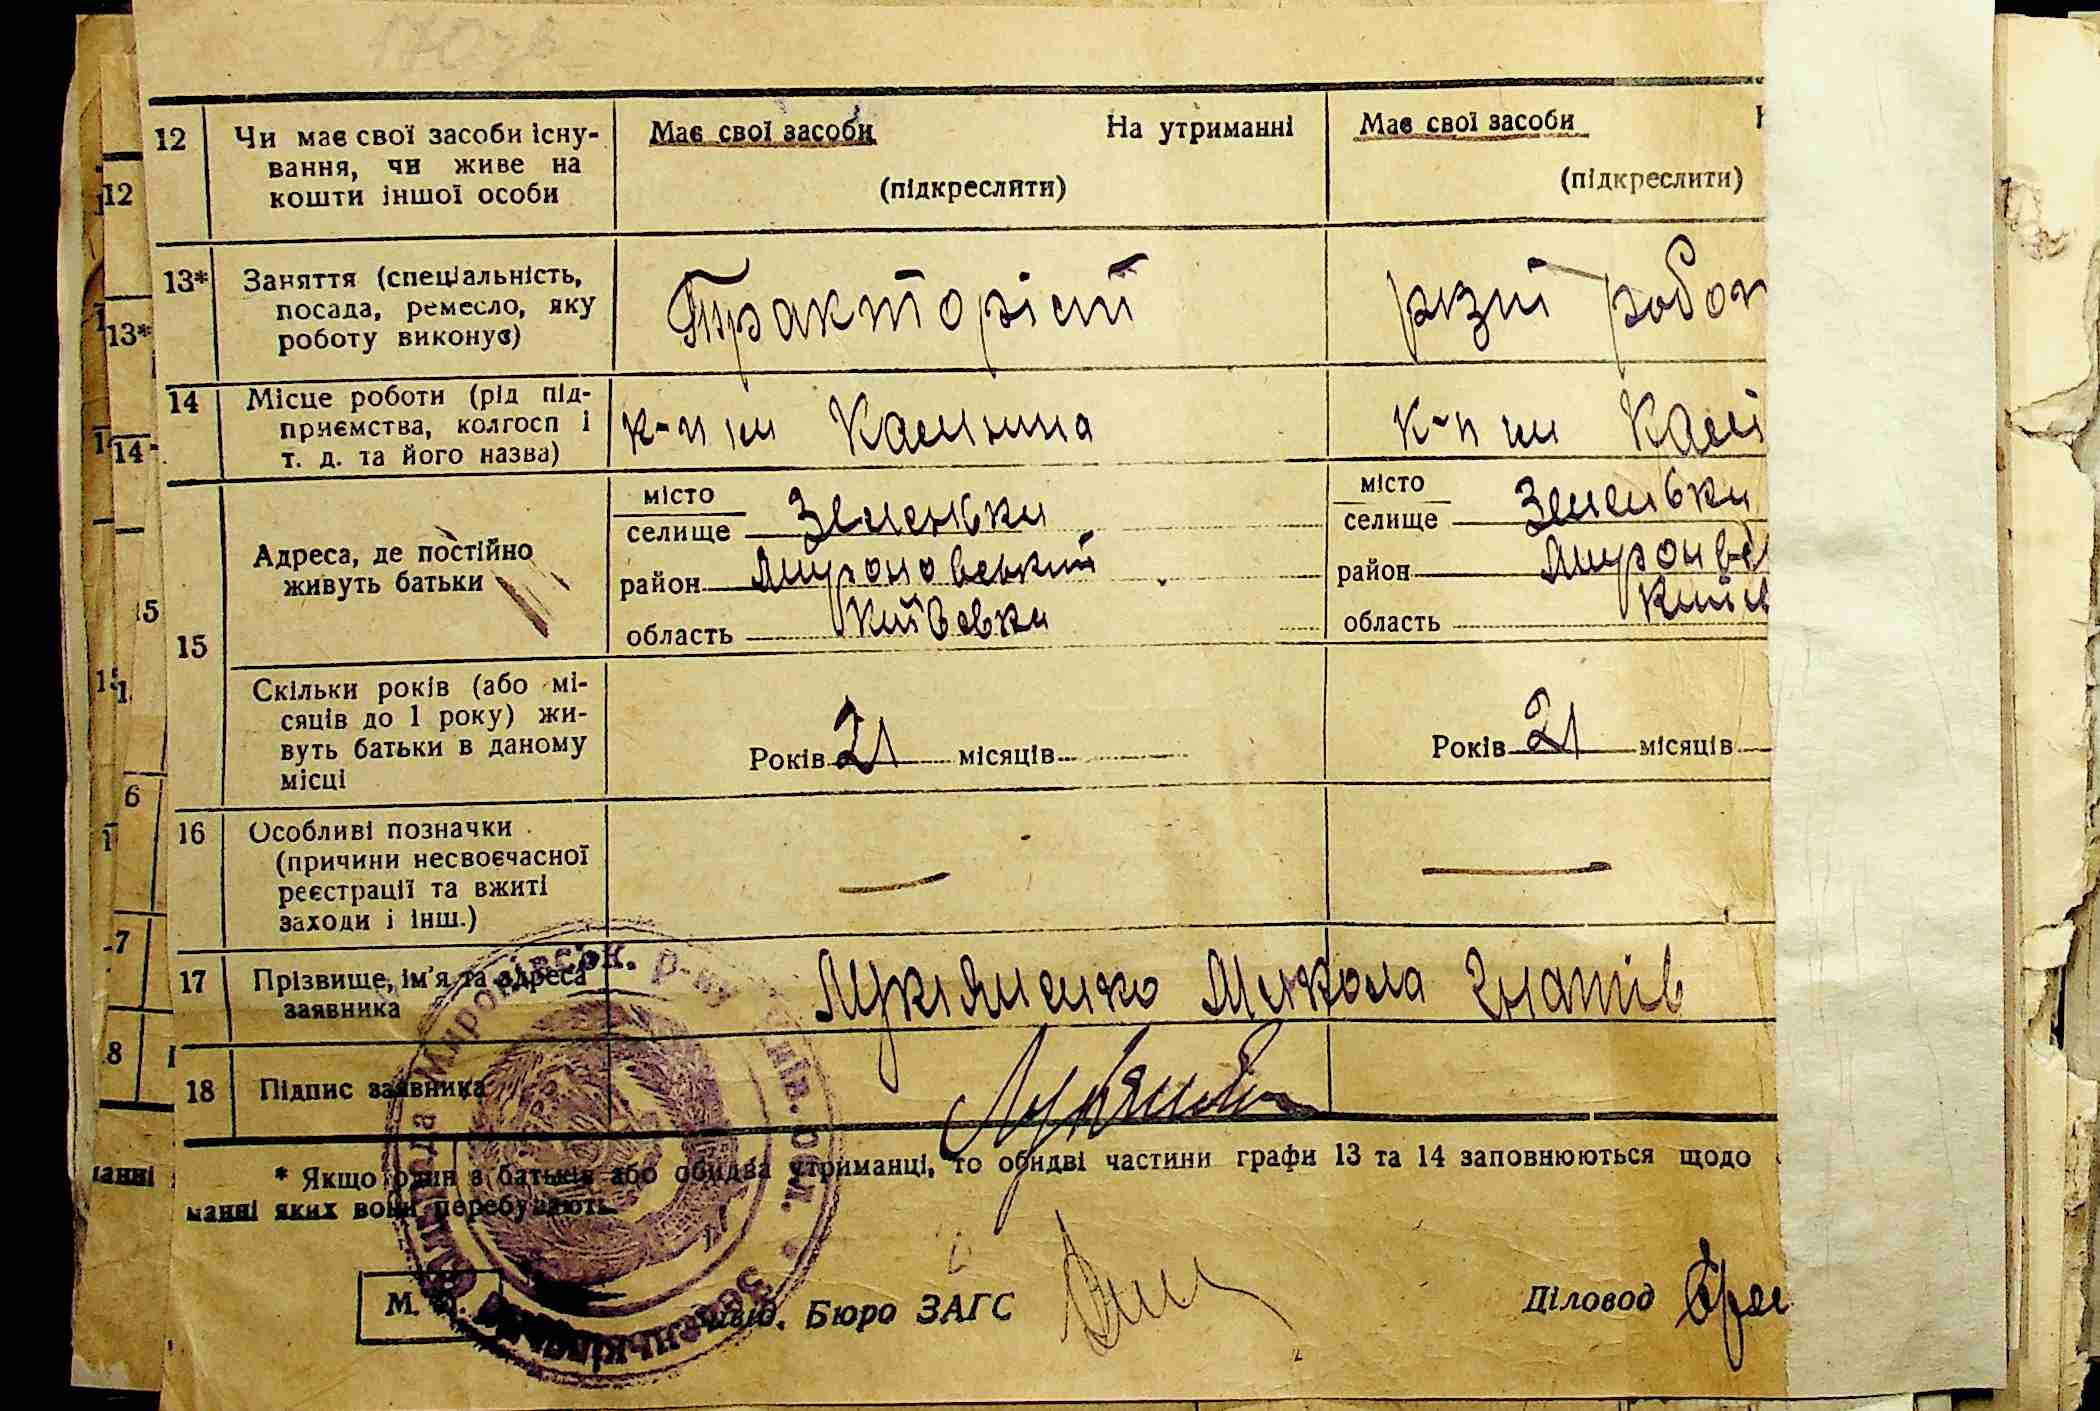 12 Чи має свої засоби існу- Має свої засоби На утриманні Має свої засоби
вання, чи живе на
кошти іншої особи (підкреслити) (підкреслити)
13* Заняття (спеціальність, Тракторіст різні робот
посада, ремесло, яку
роботу виконує)
14 Місце роботи (рід під- к-п ім Калинина к-п ім Калі
приємства, колгосп і
т. д. та його назва)
15 Адреса, де постійно живуть батьки
місто
селище Зеленьки
район Мироновський
область Київська
місто
селище Зеленьки
район Миронвс
область Київ
Скільки років (або мі-
сяців до 1 року) жи-
вуть батьки в даному
місці
Років 21 місяців
Років 21 місяців
16 Особливі позначки — —
(причини несвоєчасної
реєстрації та вжиті
заходи і інш.)
17 Прізвище, ім'я та адреса Лукіяненко Микола Гнатів
заявника
18 Підпис заявника
* Якщо один з батьків або обидва утриманці, то обидві частини графи 13 та 14 заповнюються щодо
манні яких вони перебувають.
М. Бюро ЗАГС Діловод
12
13*
14
15
6
-7
8
манні